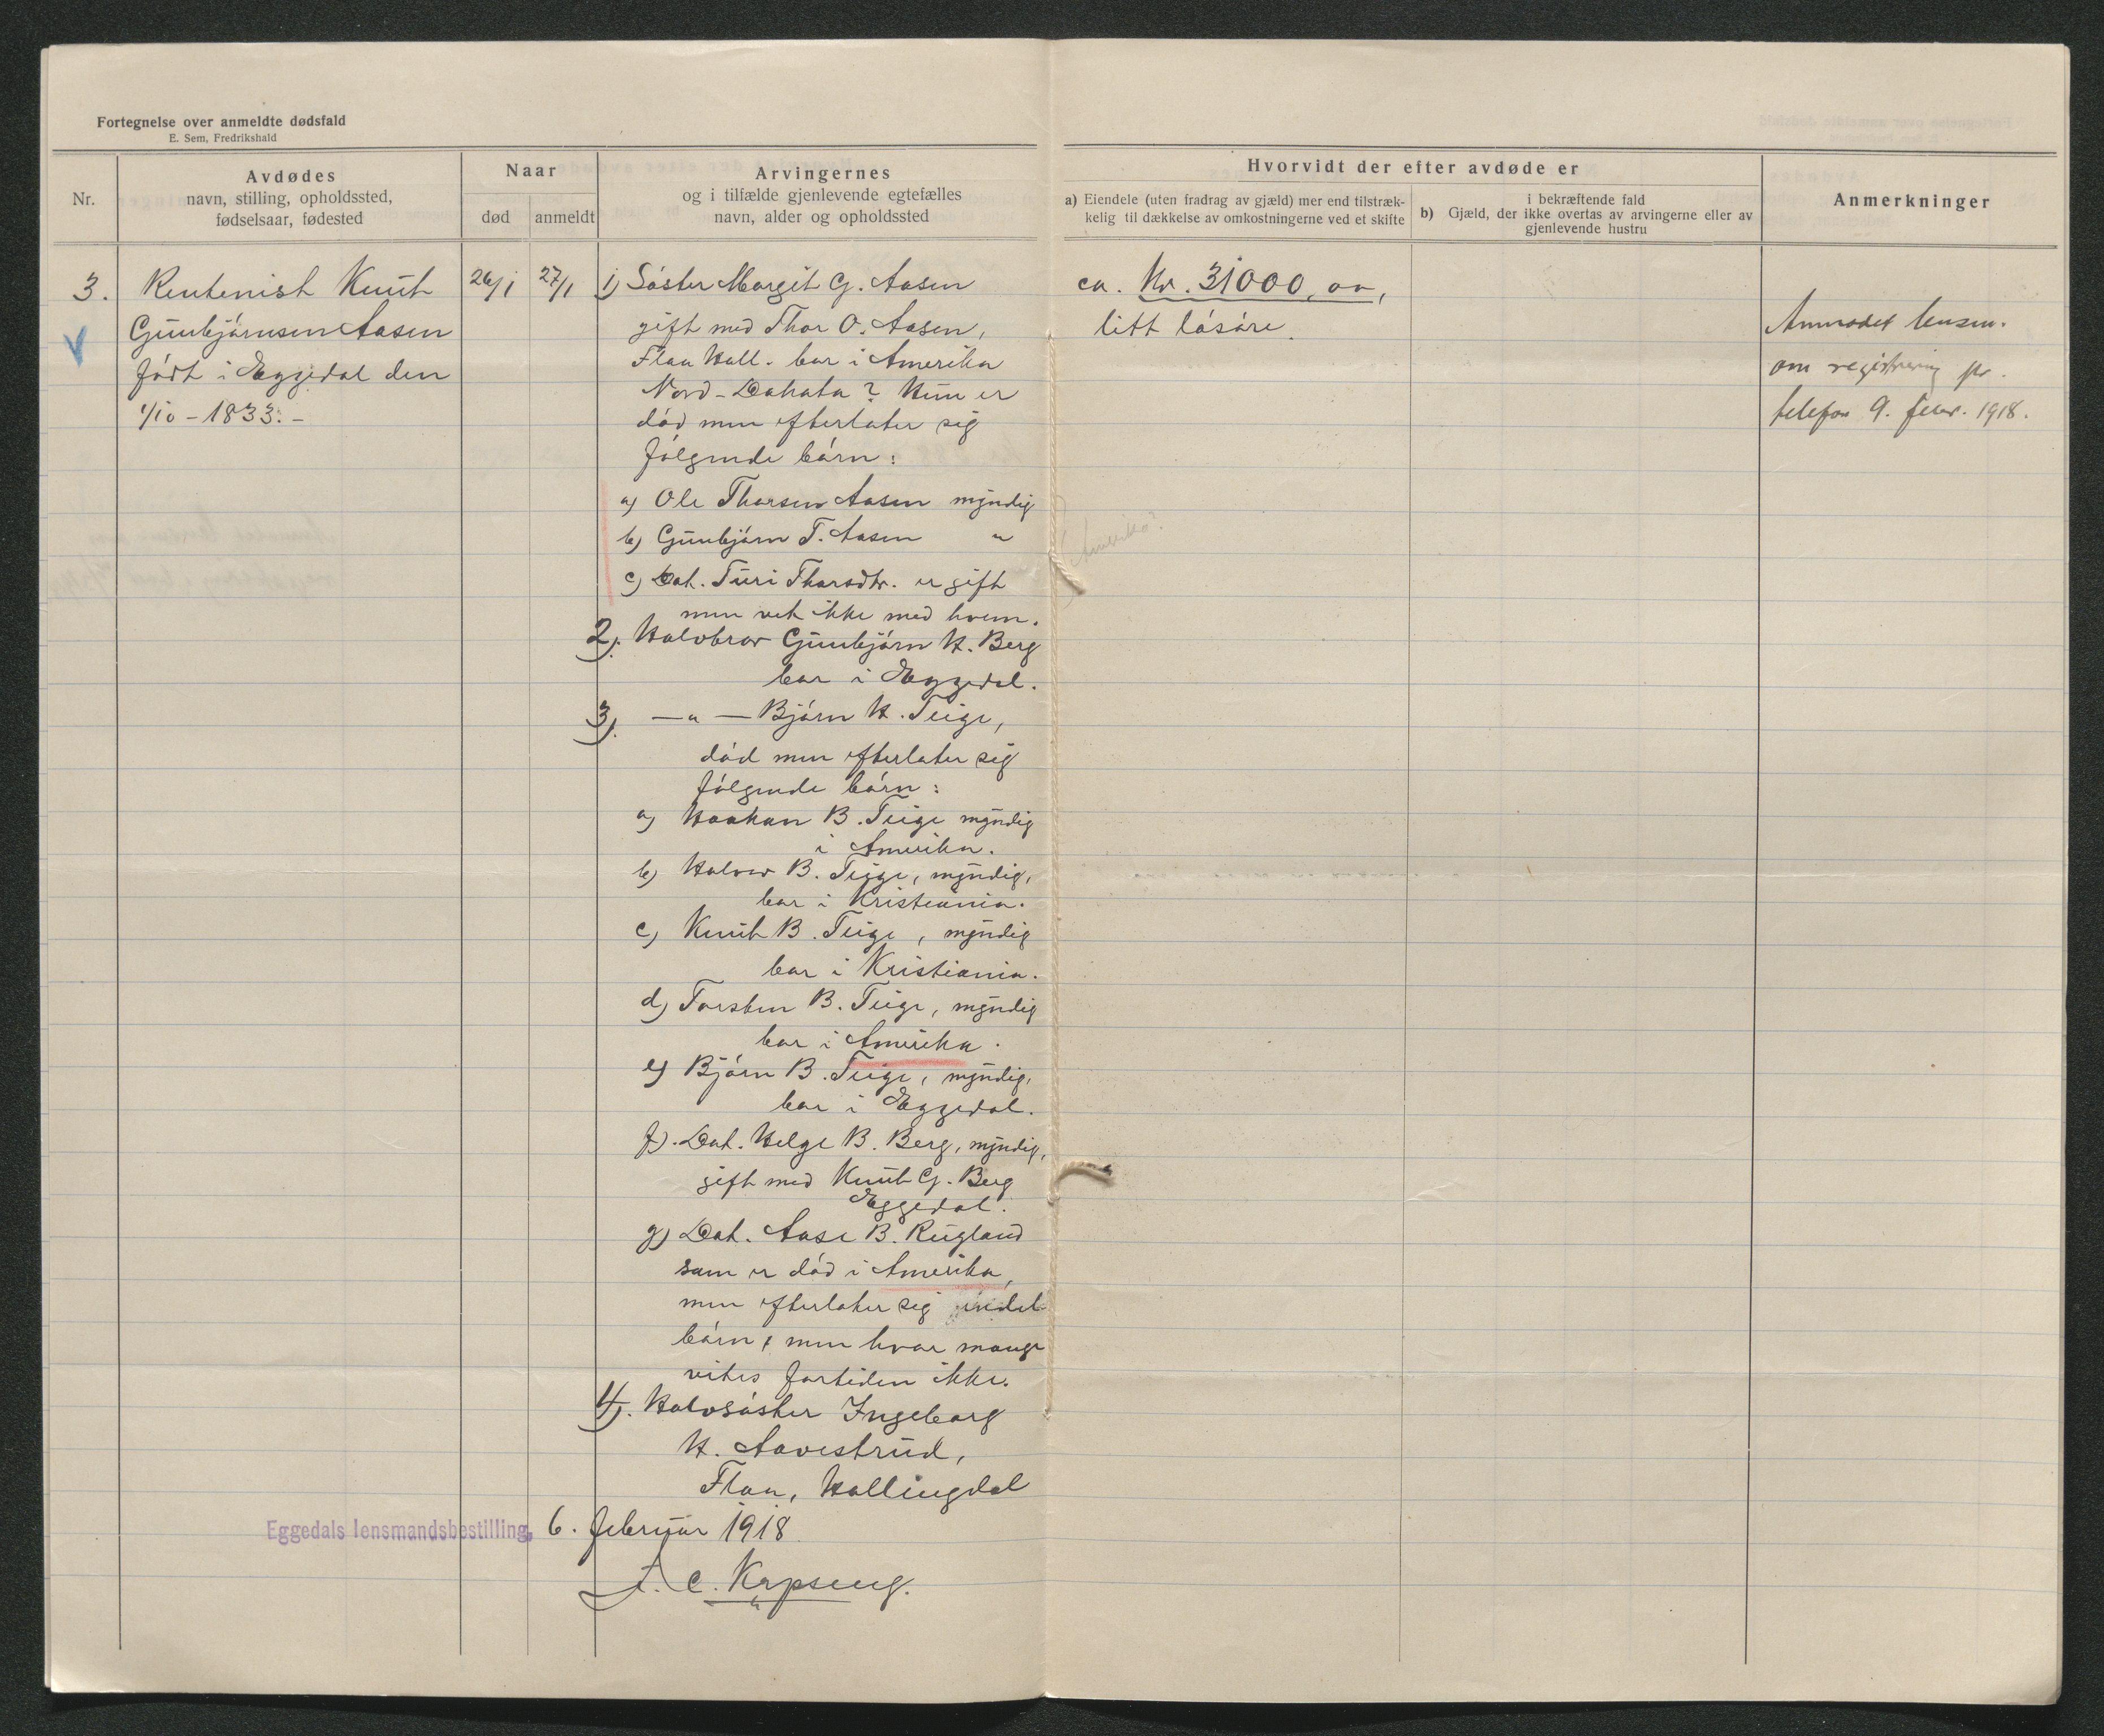 Fortegnelse over anmeldte dødsfald
E. Sem, Fredrikshald
Nr.
Avdødes
navn, stilling, opholdssted,
fødselsaar, fødested
Naar
død
anmeldt
Arvingernes
og i tilfælde gjenlevende egtefælles
navn, alder og opholdssted
Hvorvidt der efter avdøde er
a) Eiendele (uten fradrag av gjæld) mer end tilstræk-
kelig til dækkelse av omkostningerne ved et skifte
i bekræftende fald
b) Gjæld, der ikke overtas av arvingerne eller av
gjenlevende hustru
Anmerkninger
3.
Rentenist Knut
Gunbjørnsen Aasen
født i Eggedal den
1/10 - 1833. -
26/1
27/1
1) Søster Margit G. Aasen
gift med Thor O. Aasen,
Flaa Hall. bor i Amerika
Nord-Dakota? Hun er
død men efterlater sig
følgende børn:
a) Ole Thorsen Aasen myndig
b) Gunbjørn T. Aasen "
c) Dat. Turi Thorsdtr. er gift
men vet ikke med hvem.
2). Halvbror Gunbjørn H. Berg
bor i Eggedal.
3). — " — Bjørn H. Teige,
død men efterlater sig
følgende børn:
a) Haakon B. Teige myndig
i Amerika.
b) Halvor B. Teige, myndig,
bor i Kristiania.
c) Knut B. Teige, myndig
bor i Kristiania.
d) Torsten B. Teige, myndig
bor i Amerika.
e) Bjørn B. Teige, myndig,
bor i Eggedal.
f). Dat. Helge B. Berg, myndig,
gift med Knut G. Berg
Eggedal.
g) Dat. Aase B. Rugland
som er død i Amerika,
men efterlater sig endel
børn, men hvor mange
vites fortiden ikke.
4). Halvsøster Ingeborg
H. Aavestrud,
Flaa, Hallingdal
Eggedals lensmandsbestilling, 6. februar 1918
ca. Kr. 31000,00,
litt løsøre.
Amerika?
Anmodet lensm.
om registrering pr.
telefon 9. febr. 1918.